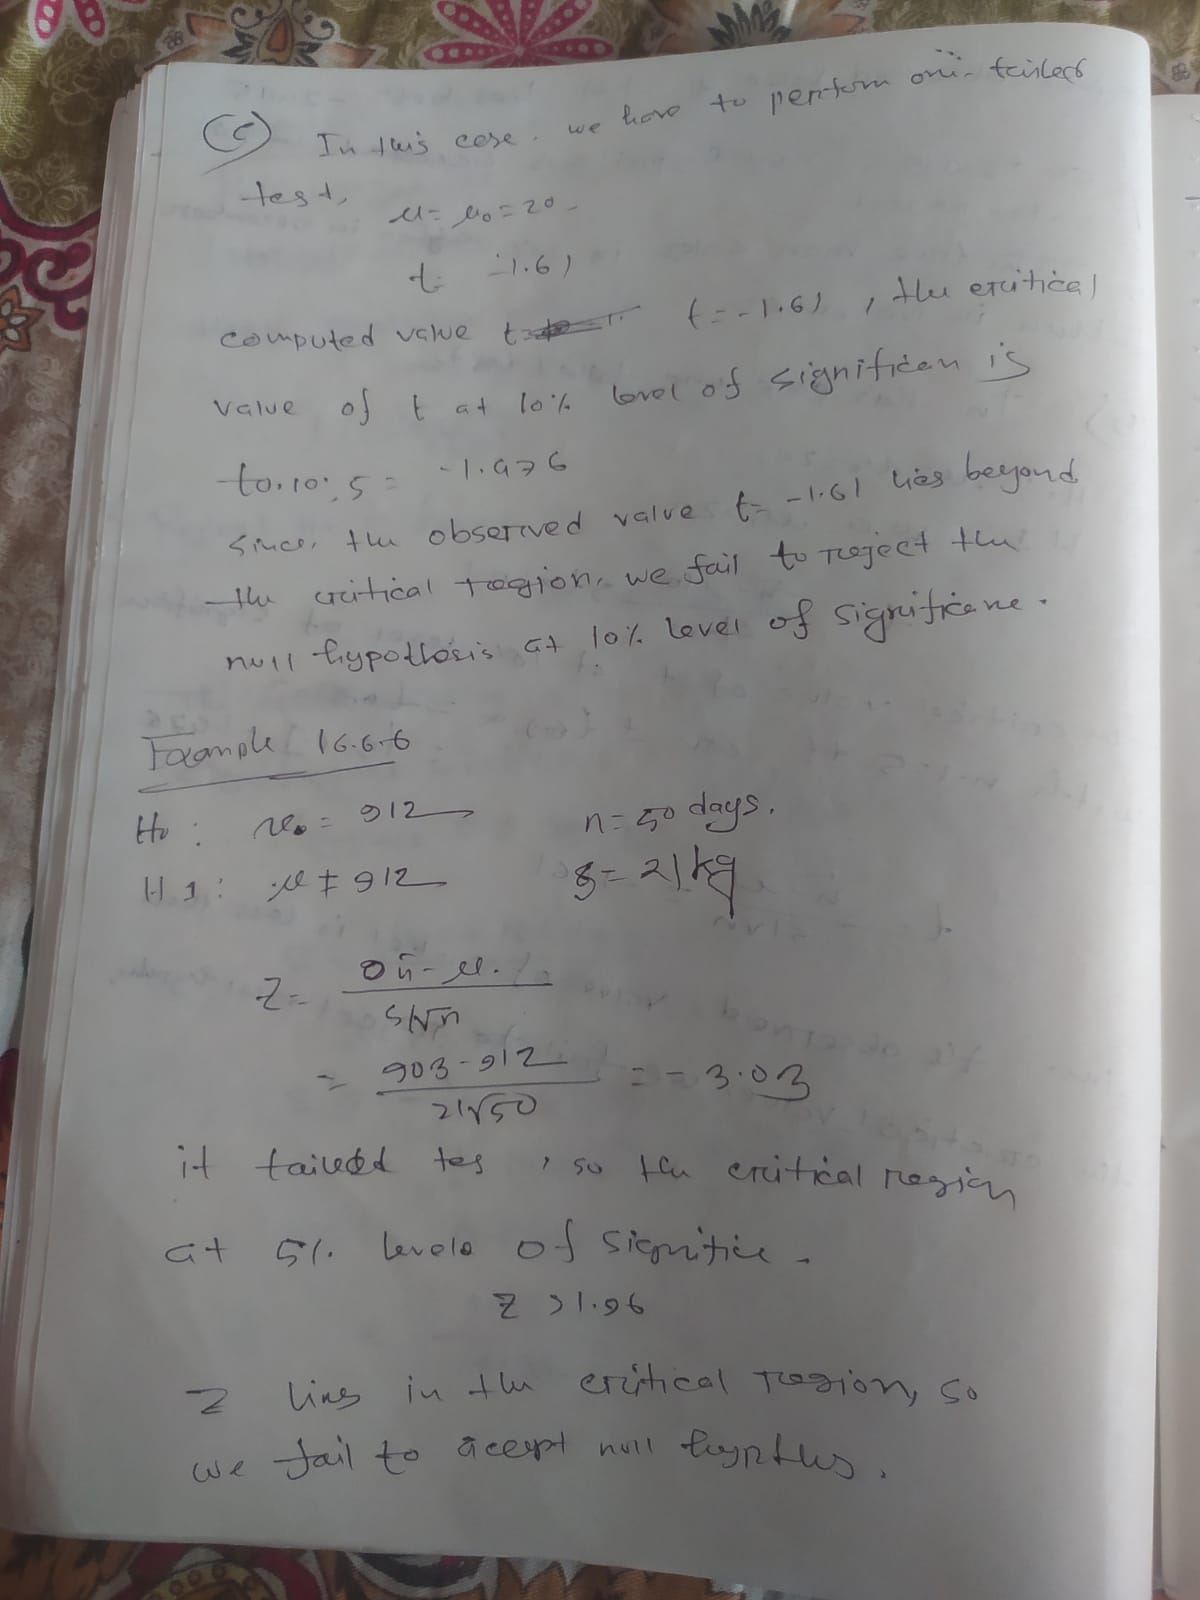 (c) In this case. we have to perform one-tailed
test,
μ = μ0 = 20
t = -1.61
computed value t = -1.61, the critical
value of t at 10% level of significan is
t0.10; 5 = -1.476
since, the observed value t = -1.61 lies beyond
the critical region, we fail to reject the
null hypothesis at 10% level of significane.
Example 16.6.6
H0: μ0 = 912 n = 50 days.
H1: μ ≠ 912 s = 21 kg
Z = x̄ - μ. / s/√n
= 903 - 912 / 21√50 = -3.03
it tailed tes, so the critical region
at 5% levele of significe.
Z > 1.96
Z lies in the critical region, so
we fail to accept null hypthes.